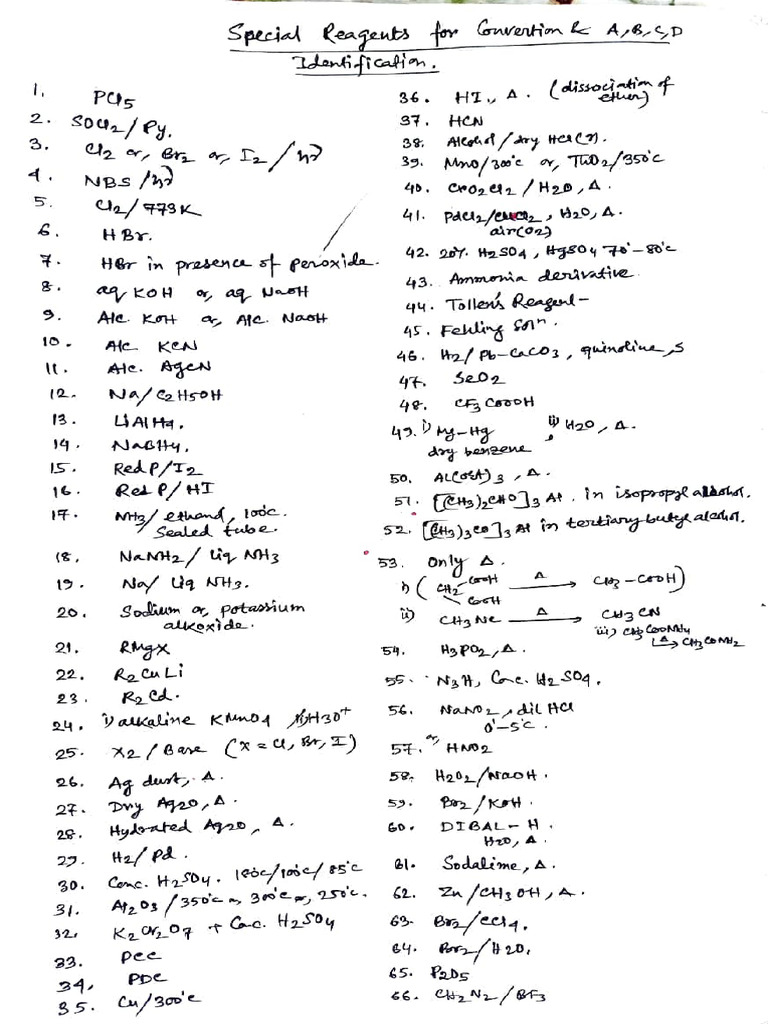 Special Reagents for Convertion & A,B,C,D
Identification.
1. PCl5
2. SOCl2/Py.
3. Cl2 or, Br2 or, I2/hν
4. NBS/hν
5. Cl2/773K
6. HBr.
7. HBr in presence of peroxide.
8. aq KOH or, aq NaOH
9. Alc. KOH or, Alc. NaOH
10. Alc KCN
11. Alc. AgCN
12. Na/C2H5OH
13. LiAlH4.
14. NaBH4.
15. Red P/I2
16. Red P/HI
17. NH3/ethanol, 100°C.
Sealed tube.
18. NaNH2/Liq NH3
19. Na/Liq NH3.
20. Sodium or, potassium
alkoxide.
21. RMgX
22. R2CuLi
23. R2Cd.
24. i) alkaline KMnO4 ii) H3O+
25. X2/Base (X = Cl, Br, I)
26. Ag dust, Δ.
27. Dry Ag2O, Δ.
28. Hydrated Ag2O, Δ.
29. H2/Pd.
30. Conc. H2SO4. 180°C/100°C/85°C
31. Al2O3/350°C or, 300°C or, 250°C.
32. K2Cr2O7 + Conc. H2SO4
33. PCC
34. PDC
35. Cu/300°C
36. HI, Δ. (dissociation of
ether)
37. HCN
38. Alcohol/dry HCl(g).
39. MnO/300°C or, ThO2/350°C
40. CrO2Cl2/H2O, Δ.
41. PdCl2/CuCl2, H2O, Δ.
air(O2)
42. 20% H2SO4, HgSO4 70°-80°C
43. Ammonia derivative.
44. Tollen's Reagent-
45. Fehling Soln.
46. H2/Pb-CaCO3, quinoline, S
47. SeO2
48. CF3COOOH
49. i) Mg-Hg ii) H2O, Δ.
dry benzene
50. Al(OEt)3, Δ.
51. [(CH3)2CHO]3Al. in isopropyl alcohol.
52. [(CH3)3CO]3Al in tertiary butyl alcohol.
53. Only Δ.
i) (CH2 COOH COOH Δ→ CH3-COOH)
ii) CH3NC Δ→ CH3CN
iii) CH3COONH4
Δ→ CH3CONH2
54. H3PO2, Δ.
55. N3H, Conc. H2SO4.
56. NaNO2, dil HCl
0°-5°C.
57. or, HNO2
58. H2O2/NaOH.
59. Br2/KOH.
60. DIBAL-H.
H2O, Δ.
61. Sodalime, Δ.
62. Zn/CH3OH, Δ.
63. Br2/CCl4.
64. Br2/H2O.
65. P2O5
66. CH2N2/BF3